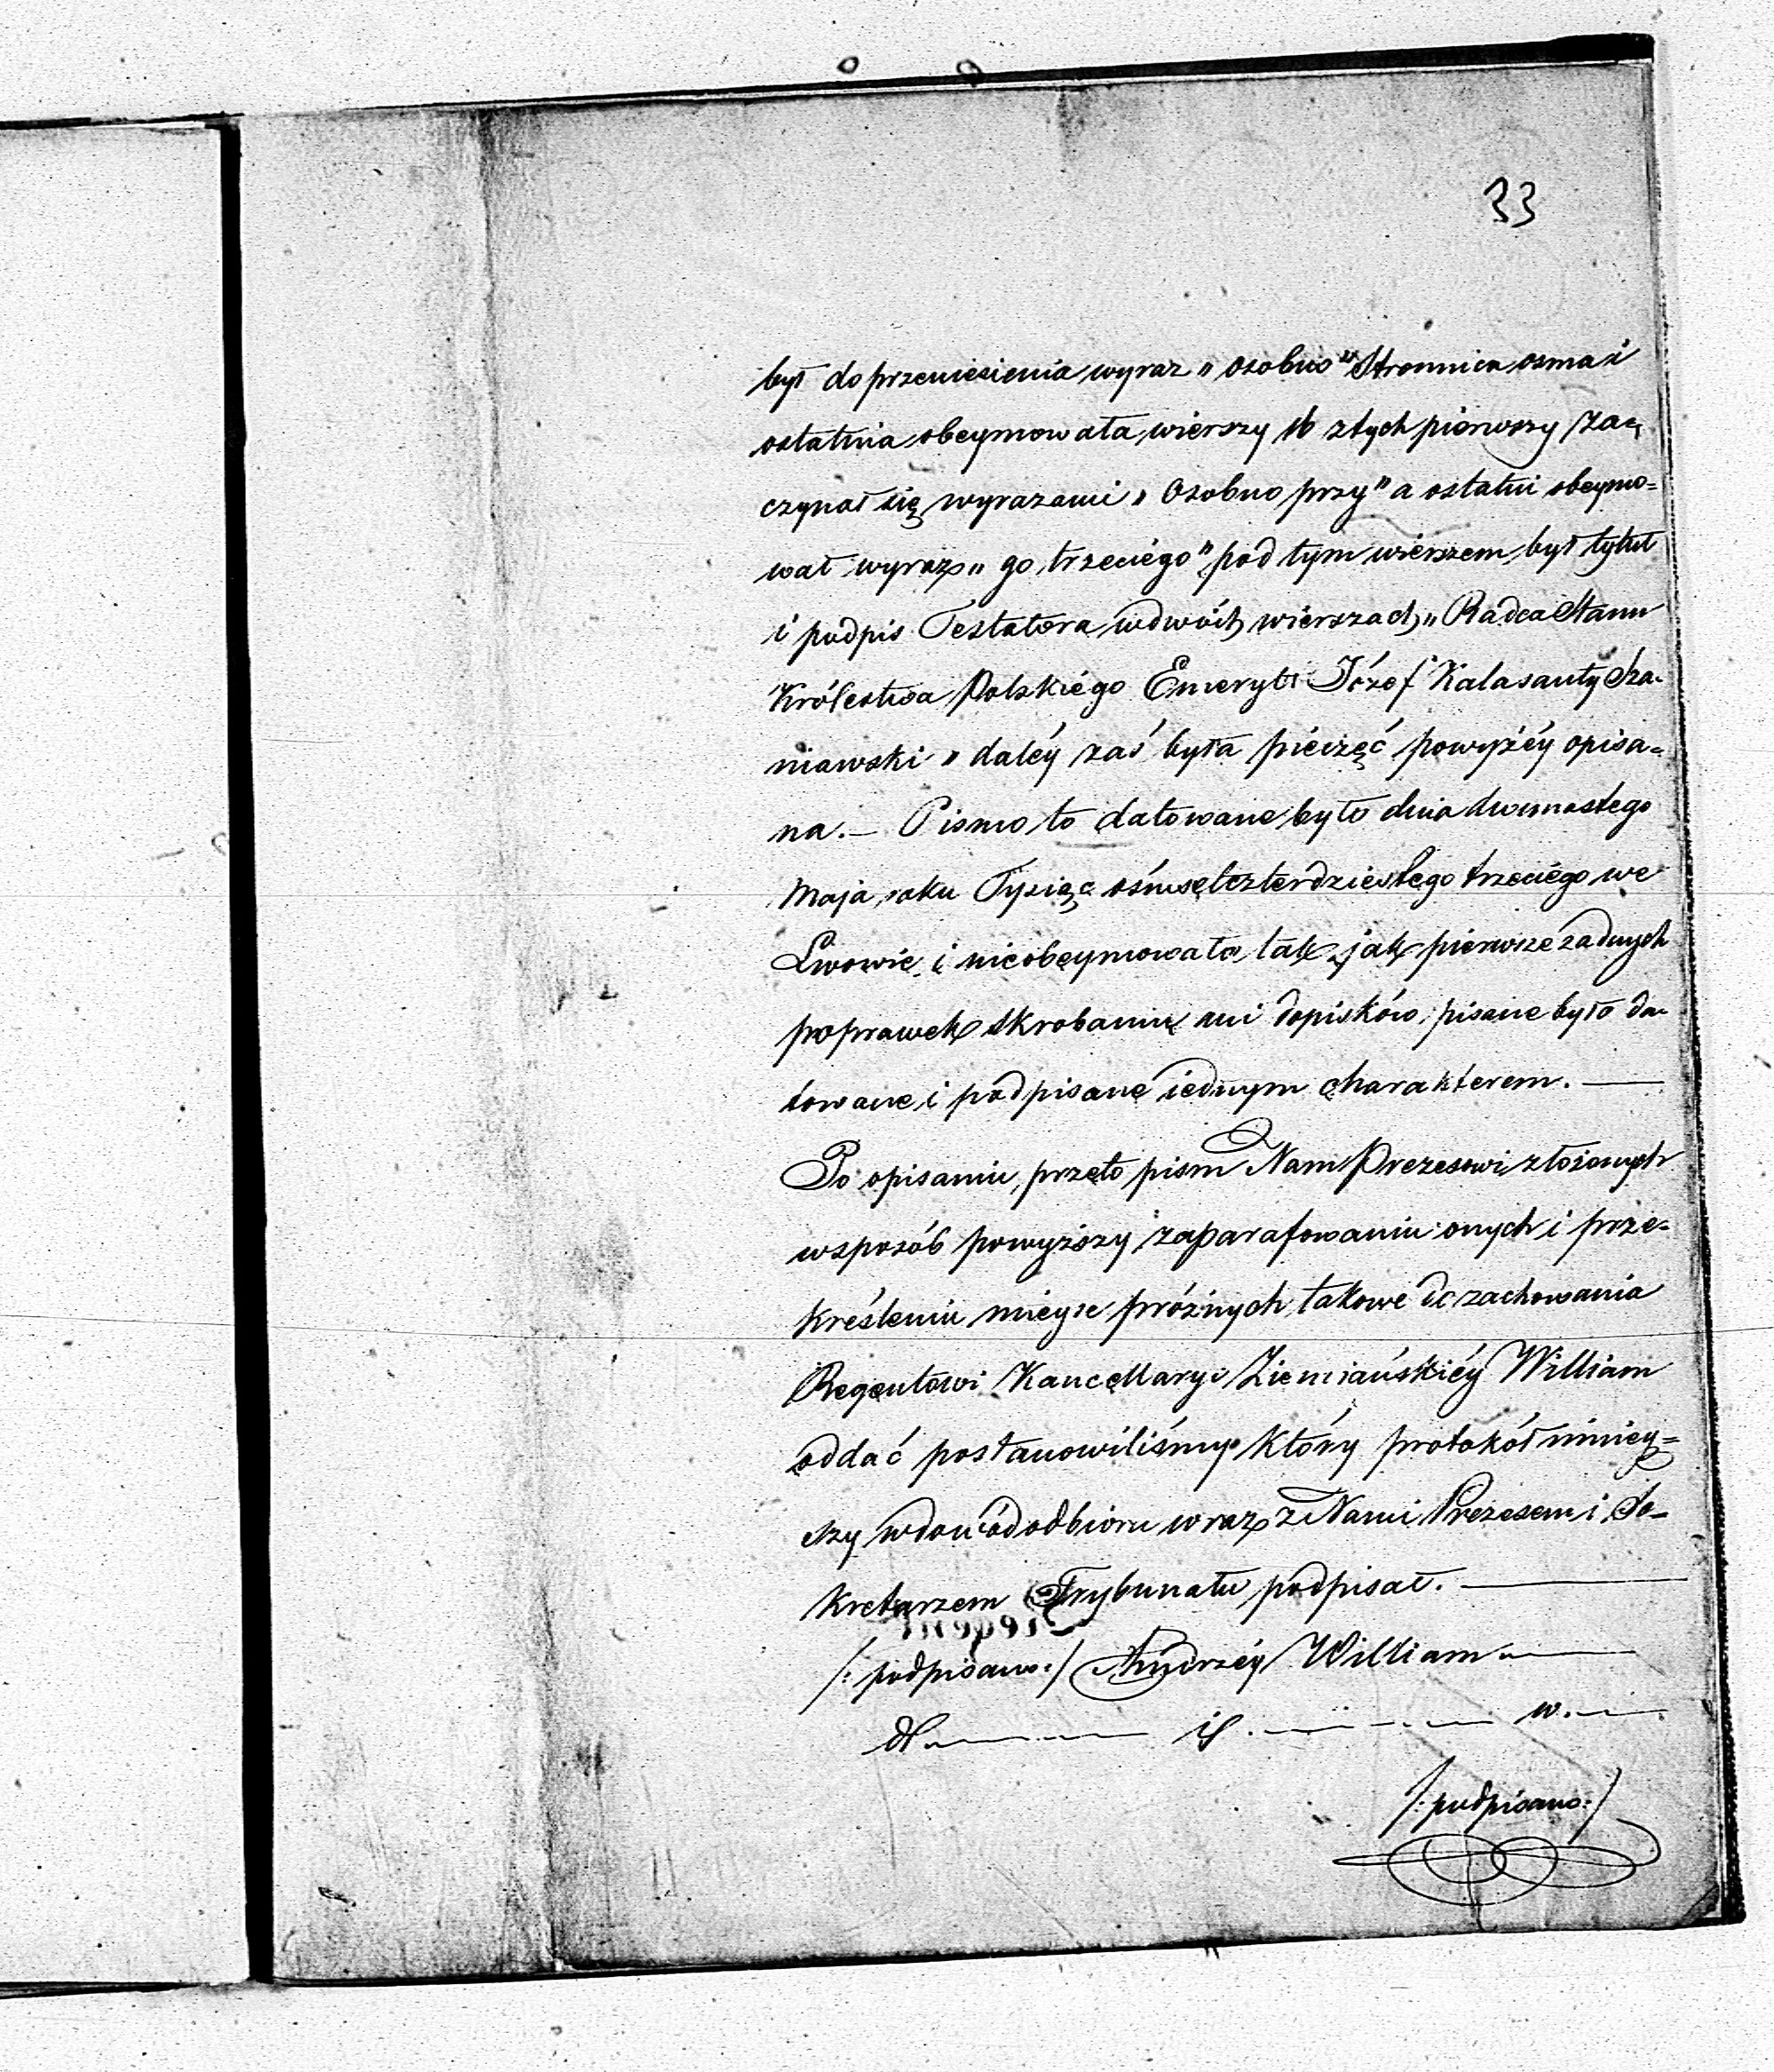 33
był do przeniesienia wyraz „osobno” Stronnica osma i
ostatnia obeymowała wierszy 16 z tych pierwszy za=
czynał się wyrazami „Osobno przy” a ostatni obeymo=
wał wyraz „go trzeciego” pod tym wierszem był tytuł
i podpis Testatora w dwóch wierszach „Radca Stanu
Królestwa Polskiego Emeryt Józef Kalasanty Sza-
niawski” daléy zaś była pieczęć powyżéy opisa=
na. — Pismo to datowane było dnia dwunastego
Maja roku Tysiąc ośmset czterdziestego trzeciego we
Lwowie i nieobeymowało tak jak pierwsze żadnych
poprawek skrobaniu ani dopisków, pisane było da-
towane i podpisane iednym charakterem. —
Po opisaniu przeto pism Nam Prezesowi złożonych
w sposób powyższy zaparafowaniu onych i prze=
kreśleniu mieysc próżnych takowe do zachowania
Regentowi Kancellaryi Ziemiańskiéy William
oddać postanowiliśmy który protokół ninięy=
szy w dowód odbioru wraz z Nami Prezesem i Se-
kretarzem Trybunału podpisał. —
/: podpisano :/ Andrzéy William —
/: podpisano :/